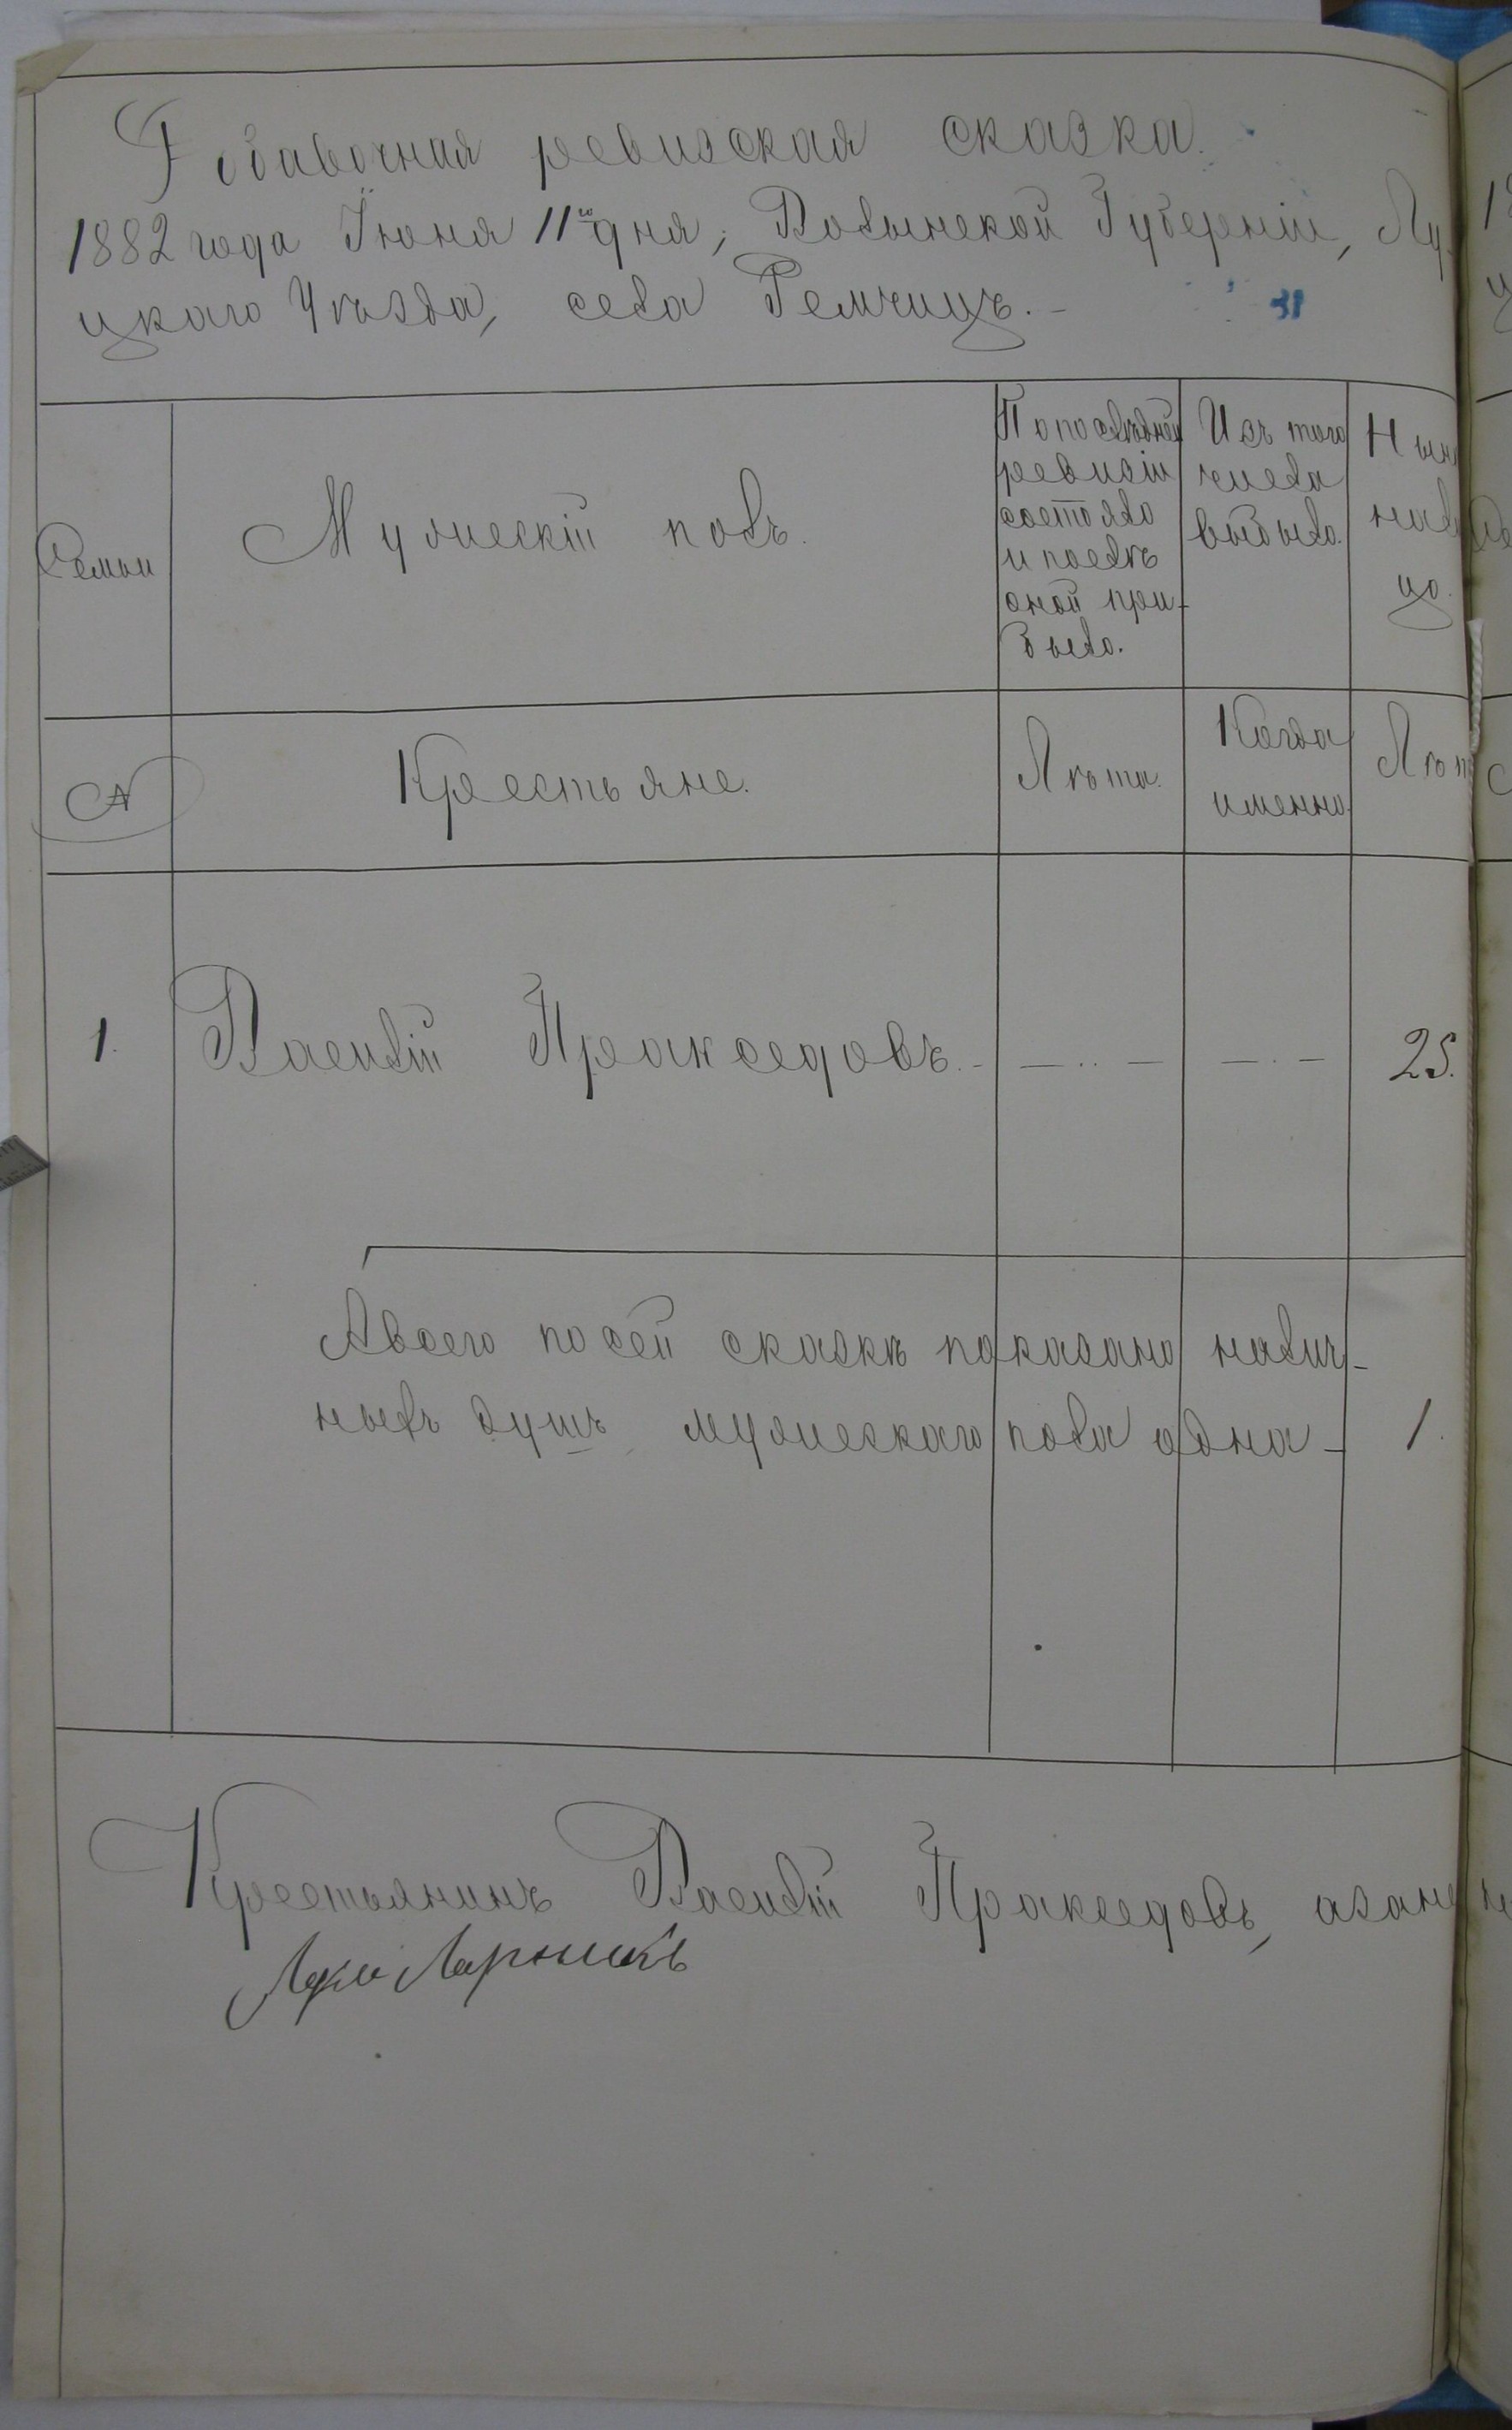 Добавочная ревизская сказка.
1882 года Іюня 11го дня, Волынской Губерніи, Лу-
цкаго Уѣзда, села Ремчицъ.-
31
Семьи
Мужескій полъ.
По последней
ревизіи
состояло
и послѣ
оной при-
было.
Изъ того
числа
выбыло.
Нын
нал
цо.
№
Крестьяне.
Лѣта.
Когда
именно.
Лѣт
1. Василій Пракседовъ. 25.
А всего по сей сказкѣ показано налич-
ныхъ душъ мужескаго пола одна - 1.
Крестьянинъ Василій Пракседовъ, а за не